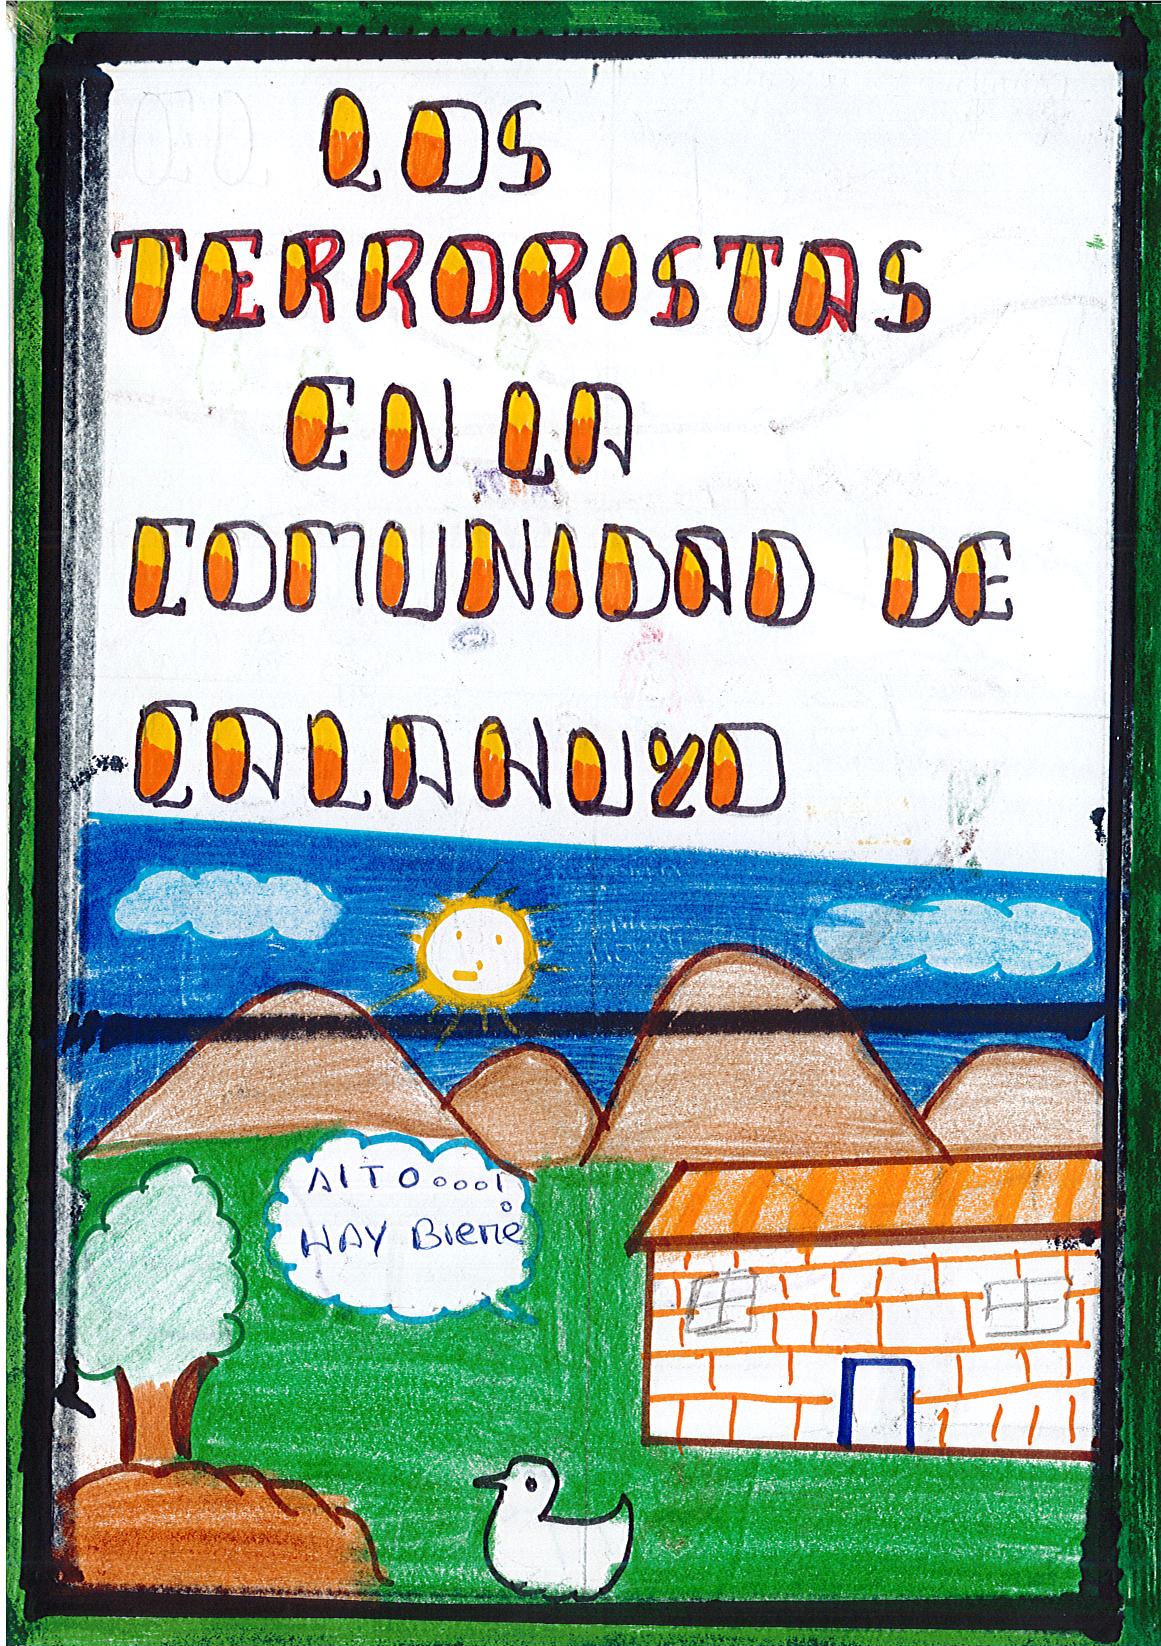 LOS
TERRORISTAS
EN LA
COMUNIDAD DE
CALAHUYO
AlTOoooo!
HAY Biene